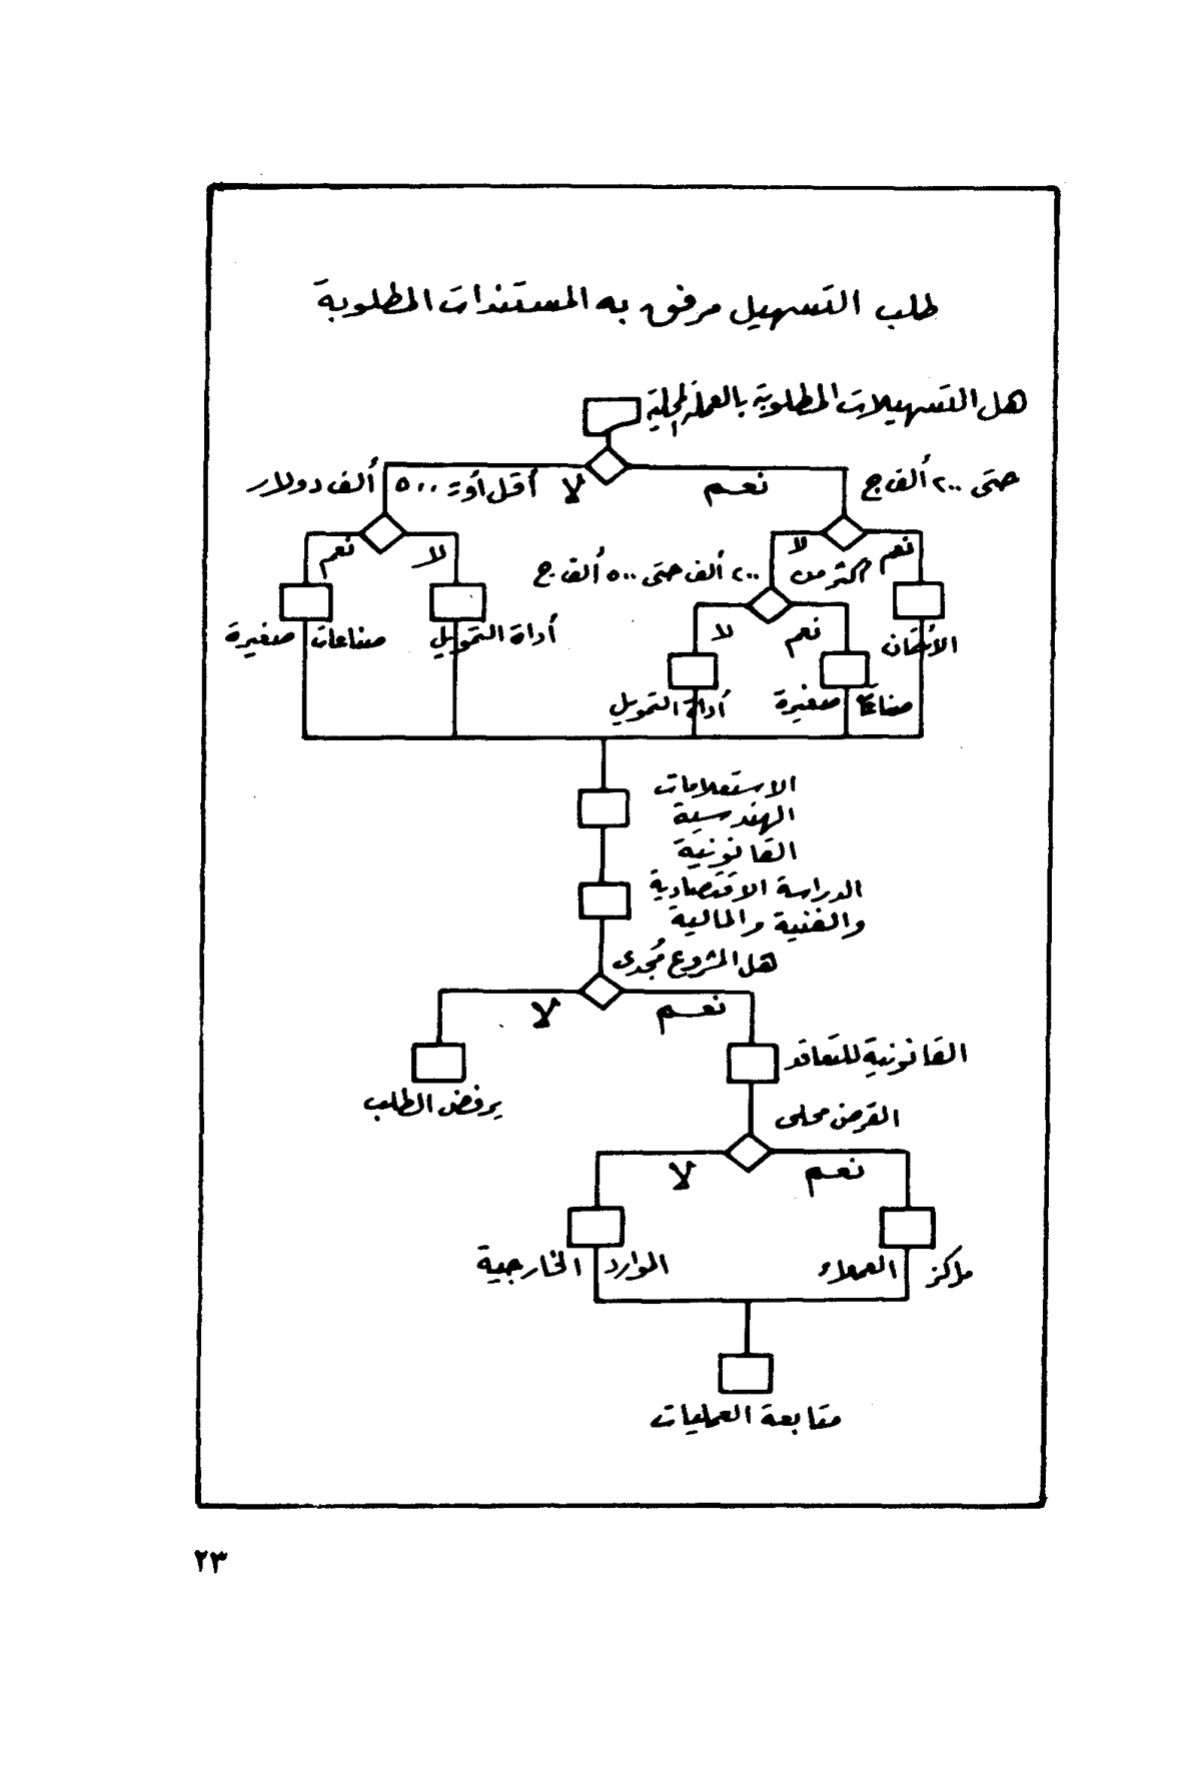 طلب التسهيل مرفق به المستندات المطلوبة
هل التسهيلات المطلوبة بالعملة المحلية
حتى ٢٠٠ ألف ج
نعم
لا
أقل أو = ٥٠٠ ألف دولار
نعم
لا
أكثر من ٢٠٠ ألف حتى ٥٠٠ ألف ج
لا
نعم
الائتمان
نعم
لا
صناعات صغيرة
أداة التمويل
أداة التمويل
صناعات صغيرة
الاستعلامات
الهندسية
القانونية
الدراسة الاقتصادية
والفنية والمالية
هل المشروع مُجدى
نعم
لا
القانونية للتعاقد
يرفض الطلب
القرض محلى
نعم
لا
مراكز العملاء
الموارد الخارجية
متابعة العمليات
٢٣